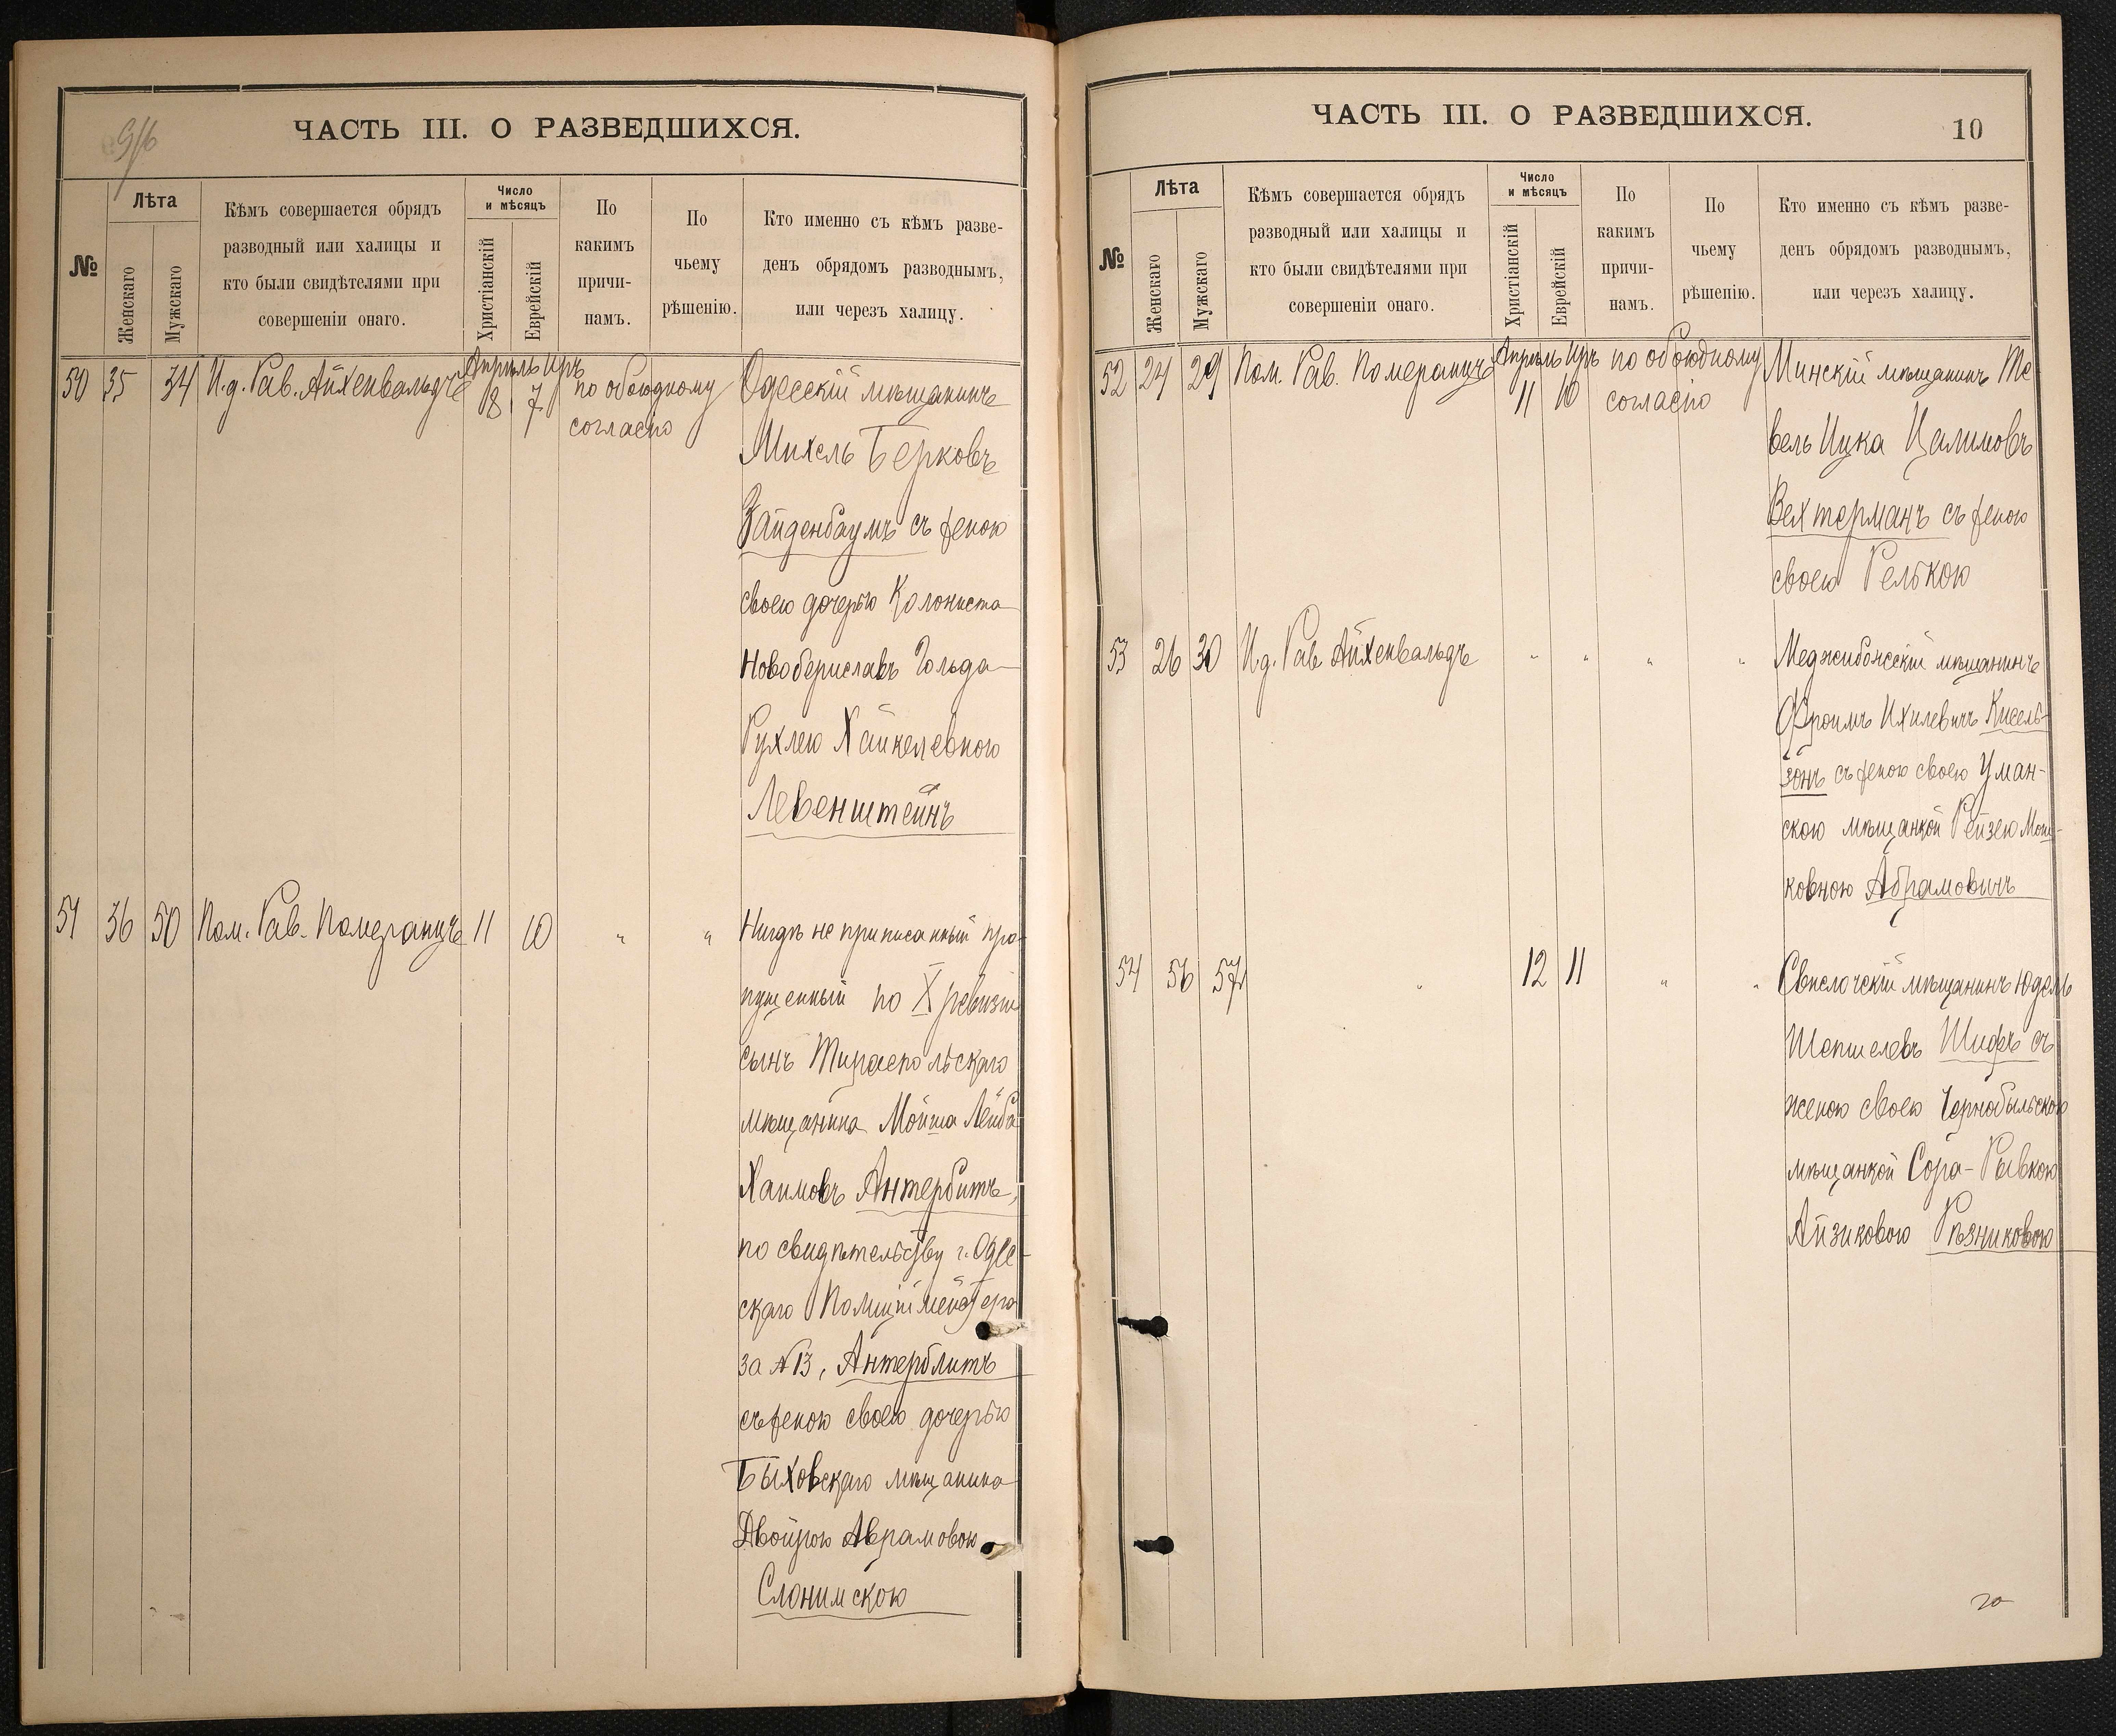 9/6
ЧАСТЬ III. О РАЗВЕДШИХСЯ.
№
Лѣта
Женскаго
Мужскаго
Кѣмъ совершается обрядъ
разводный или халицы и
кто были свидѣтелями при
совершеніи онаго.
Число
и мѣсяцъ
Христіанскій
Еврейскій
По
какимъ
причи-
намъ.
По
чьему
рѣшенію.
Кто именно съ кѣмъ разве-
денъ обрядомъ разводнымъ,
или черезъ халицу.
Апрѣль Иръ
50 35 34 И.д. Рав. Айхенвальдъ 8 7 по обоюдному Одесскій мѣщанинъ
согласію
Михель Берковъ
Зайденбаумъ съ женою
своею дочерью Колониста
Новобериславъ Гольда
Рухлею Хайкелевною
Левенштейнъ
51 36 50 Пом. Рав. Померанцъ 11 10 " " Нигдѣ не приписанный про-
пущенный по X ревизіи
сынъ Тираспольскаго
мѣщанина Мойша Лейба
Хаимовъ Антербитъ,
по свидѣтельству г. Оде-
скаго Полиціймейстера
за №13, Антерблитъ
съ женою своею дочерью
Быховскаго мѣщанина
Двойрою Аврамовою
Слонимскою
ЧАСТЬ III. О РАЗВЕДШИХСЯ.
10
№
Лѣта
Женскаго
Мужскаго
Кѣмъ совершается обрядъ
разводный или халицы и
кто были свидѣтелями при
совершеніи онаго.
Число
и мѣсяцъ
Христіанскій
Еврейскій
По
какимъ
причи-
намъ.
По
чьему
рѣшенію.
Кто именно съ кѣмъ разве-
денъ обрядомъ разводнымъ,
или черезъ халицу.
Апрѣль Иръ
52 24 29 Пом. Рав. Померанцъ 11 10 по обоюдному Минскій мѣщанинъ Те
согласію
вель Ицка Цалимовъ
Вехтерманъ съ женою
своею Релькою
53 26 30 И.д. Рав Айхенвальдъ " " " " Меджибожскій мѣщанинъ
Фроимъ Ихилевичъ Кисель-
зонъ съ женою своею Уман-
скою мѣщанкой Рейзею Мош-
ковною Абрамовичъ
54 56 57 " 12 11 " " Свислочскій мѣщанинъ Юдель
Шепшелевъ Шифъ съ
женою своею Чернобыльскою
мѣщанкой Сора-Рывкою
Айзиковою Рѣзниковою